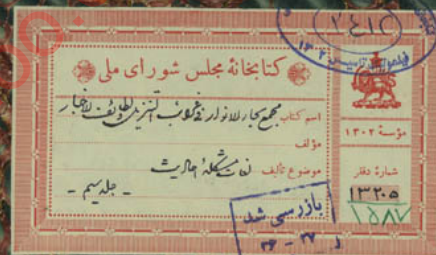 ۲۴۱۲
تأسیس ۱۳۰۲
کتابخانهٔ مجلس شورای ملی
اسم کتاب مجمع بحار الانوار فی غرائب التنزیل و لطائف الاخبار
مؤلف
موضوع تألیف لغات مشکلهٔ احادیث
- جلد سیم -
مؤسسهٔ ۱۳۰۲
شمارهٔ دفتر
۱۳۲۰۵
۱۵۸۷
بازرسی شد
۳۶ - ۳۷